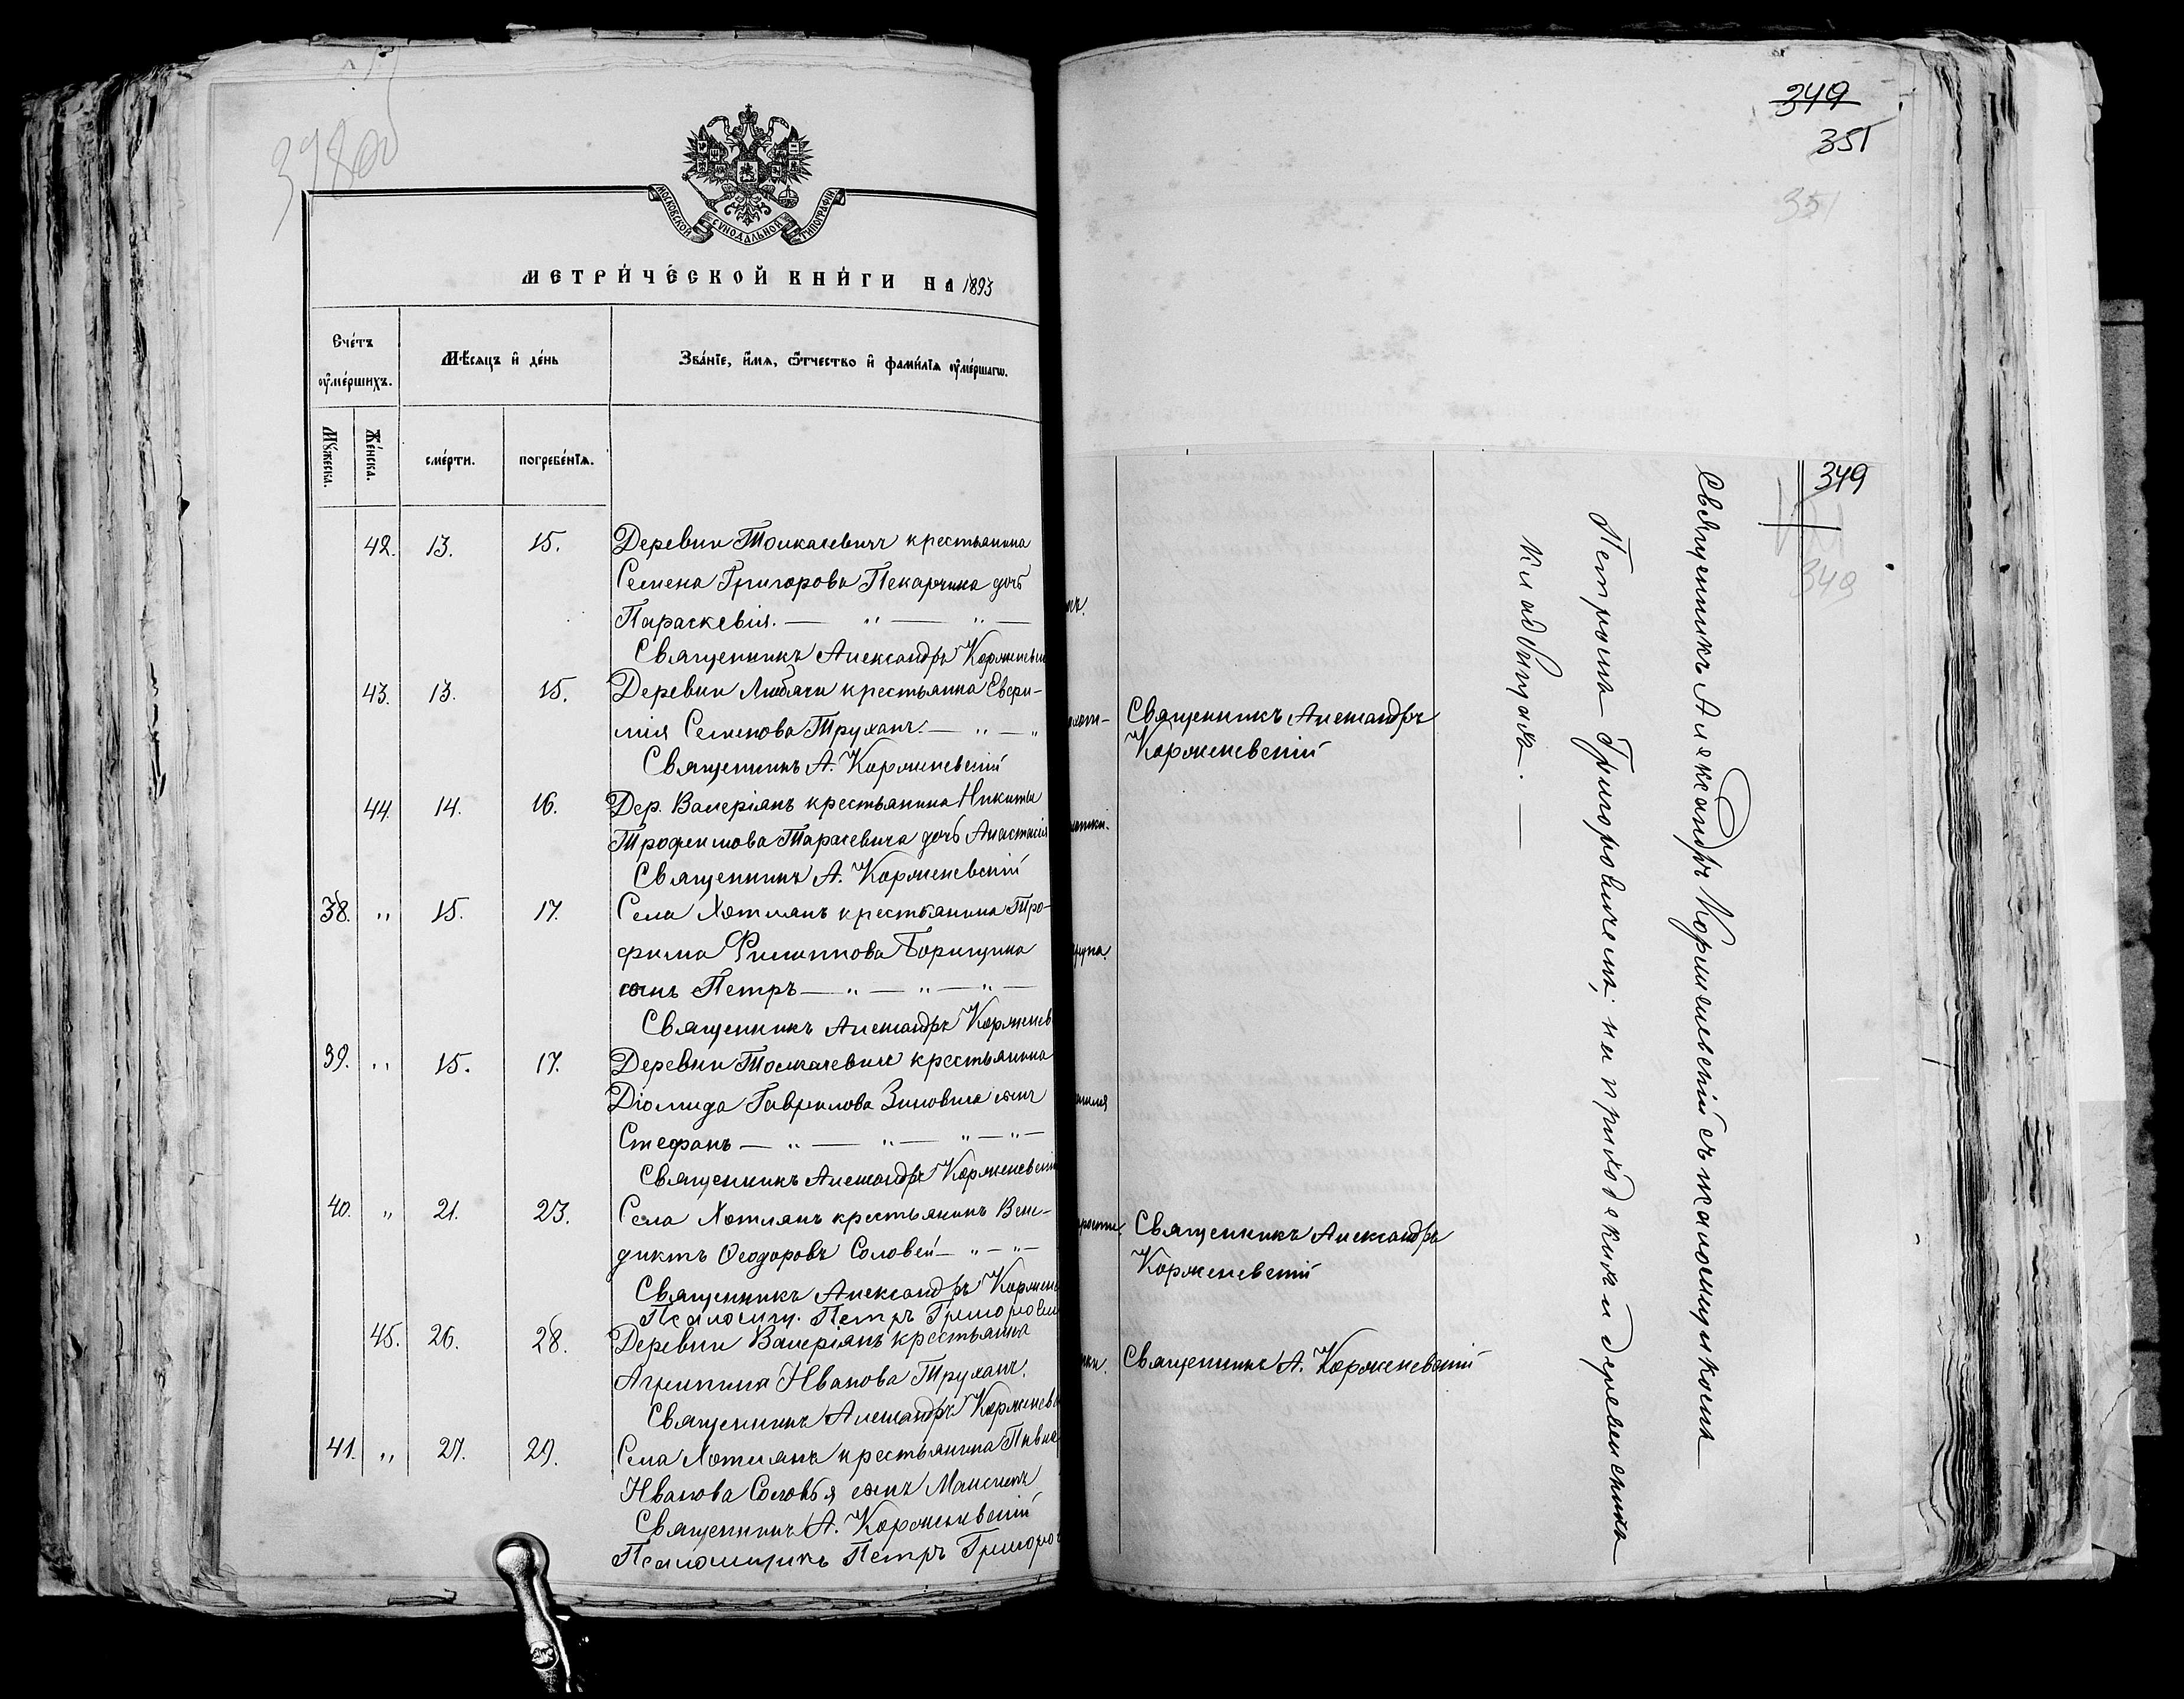 398об
МОСКОВСКОЙ СѴНОДАЛЬНОЙ ТИПОГРАФІИ
МЕТРИ́ЧЕСКОЙ КНИ́ГИ НА 1893
Сче́тъ оу҆ме́ршихъ.
Мѣ́сяцъ и҆ де́нь
Зва́нїе, и҆́мѧ, ѻ҆́тчество и҆ фами́лїѧ оу҆ме́ршагѡ.
Мꙋ́жеска.
Же́нска.
сме́рти.
погребе́нїѧ.
42. 13. 15. Деревни Толкачевичъ крестьянина
Семена Григорова Пекарчика дочь
Параскевія. — " — " —
Священникъ Александръ Корженевс
43. 13. 15. Деревни Любачи крестьянка Евфи-
мія Семенова Труханъ. — " — "
Священникъ А. Корженевскій
44. 14. 16. Дер. Валеріянъ крестьянина Никиты
Трофимова Тарасевича дочь Анастасія
Священникъ А. Корженевскій
38. " 15. 17. Села Хотлянъ крестьянина Тро-
фима Филиппова
сынъ Петръ — " — " — " —
Священникъ Александръ Корженев
39. " 15. 17. Деревни Толкачевичъ крестьянина
Діомида Гаврилова Зиновича сынъ
Стефанъ — " — " — " — " —
Священникъ Александръ Корженевскій
40. " 21. 23. Села Хотлянъ крестьянинъ Вене-
диктъ Ѳеодоровъ Соловей — " — " —
Священникъ Александръ Коржене
Псаломщ. Петръ Григорови
45. 26. 28. Деревни Валеріянъ крестьянка
Агрипина Иванова Труханъ.
Священникъ Александръ Корженевс
41. " 27. 29. Села Хотлянъ крестьянина Павла
Иванова Соловья сынъ Максимъ
Священникъ А. Корженевскій
Псаломщикъ Петръ Григоро
349
351
351
349
349
Священникъ Александръ
Корженевскій
Священникъ Александръ
Корженевскій
Священникъ А. Корженевскій
Священникъ Александръ Корженевскій съ псаломщикомъ
Петромъ Григоровичемъ, на приходскихъ и деревенскихъ
кладбищахъ. —